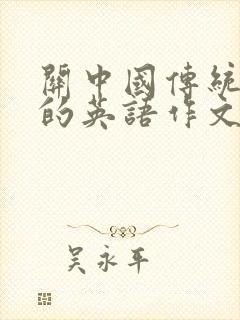 關中國傳統
的英語作文
吳永平